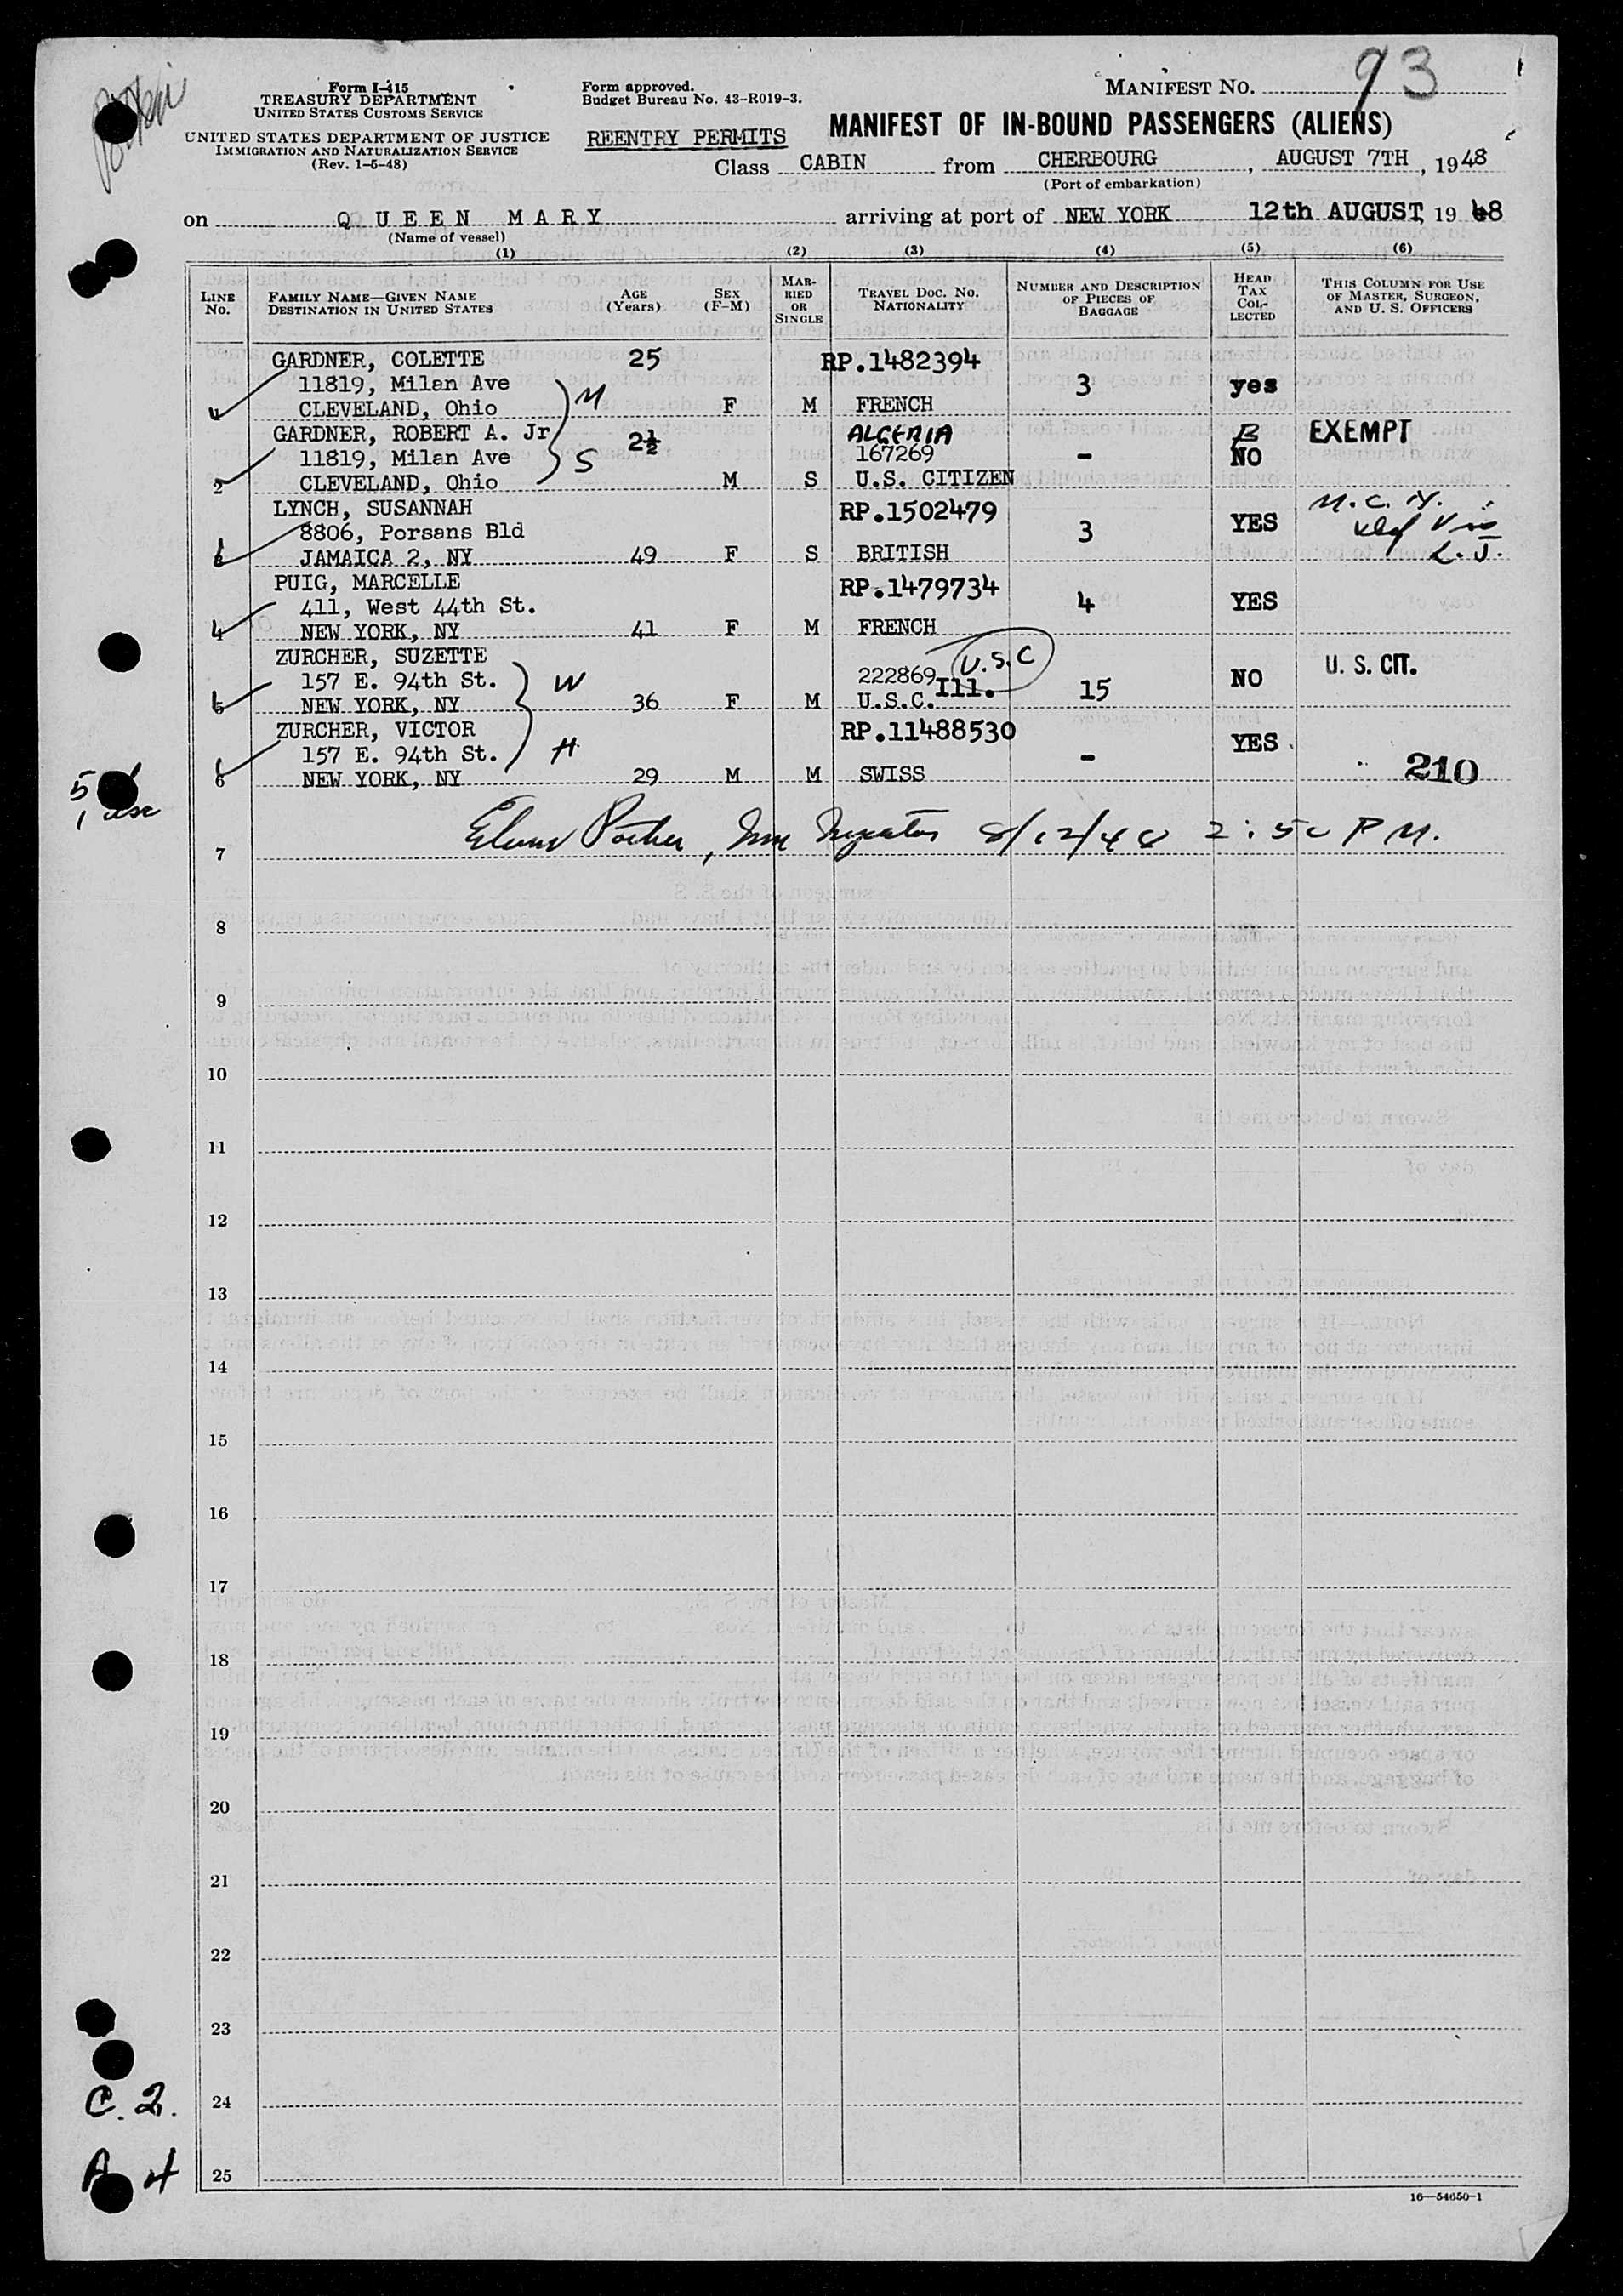 93
Form I-415
TREASURY DEPARTMENT
UNITED STATES CUSTOMS SERVICE
UNITED STATES DEPARTMENT OF JUSTICE
IMMIGRATION AND NATURALIZATION SERVICE
(Rev. 1-5-48)
Form approved.
Budget Bureau No. 43-R019-3.
REENTRY PERMITS
MANIFEST NO.
MANIFEST OF IN-BOUND PASSENGERS (ALIENS)
Class CABIN from CHERBOURG, AUGUST 7TH, 1948
(Port of embarkation)
on QUEEN MARY arriving at port of NEW YORK 12th AUGUST 1948
(Name of vessel)
(1) (2) (3) (4) (5) (6)
LINE No.
FAMILY NAME—GIVEN NAME
DESTINATION IN UNITED STATES
AGE (Years)
SEX (F-M)
MARRIED OR SINGLE
TRAVEL DOC. No. NATIONALITY
NUMBER AND DESCRIPTION OF PIECES OF BAGGAGE
HEAD TAX COLLECTED
THIS COLUMN FOR USE OF MASTER, SURGEON, AND U. S. OFFICERS
GARDNER, COLETTE 25 RP.1482394
11819, Milan Ave M 3 yes
CLEVELAND, Ohio F M FRENCH
GARDNER, ROBERT A. Jr 2½ ALGERIA EXEMPT
11819, Milan Ave S 167269 - NO
2 CLEVELAND, Ohio M S U.S. CITIZEN
LYNCH, SUSANNAH RP.1502479
8806, Porsans Bld 3 YES
JAMAICA 2, NY 49 F S BRITISH L. J.
PUIG, MARCELLE RP.1479734
411, West 44th St. 4 YES
4 NEW YORK, NY 41 F M FRENCH
ZURCHER, SUZETTE U.S.C U. S. CIT.
157 E. 94th St. W 222869 Ill. 15 NO
5 NEW YORK, NY 36 F M U.S.C.
ZURCHER, VICTOR RP.11488530
157 E. 94th St. H - YES
6 NEW YORK, NY 29 M M SWISS 210
5
1 usc
7 8/12/48 2:50 P M.
8
9
10
11
12
13
14
15
16
17
18
19
20
21
22
23
24
25
C. 2.
A 4
16—54650-1